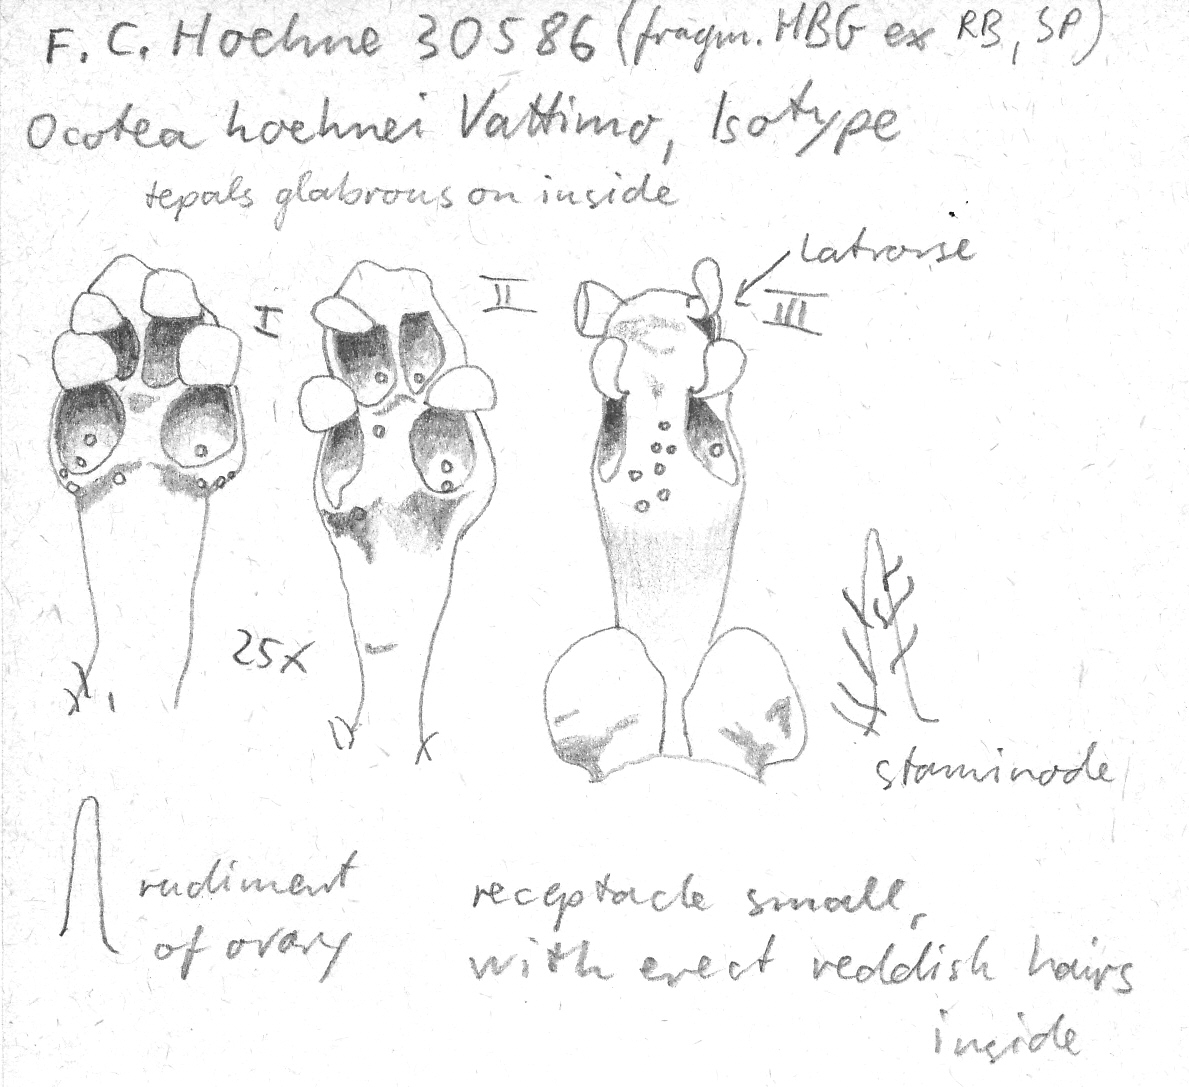 F. C. Hoehne 30586 (fragm. HBG ex RB, SP)
Ocotea hoehnei Vattimo, Isotype
tepals glabrous on inside
Latrorse
I
II
III
25x
staminode
rudiment
of ovary
receptacle small,
with erect reddish hairs
inside